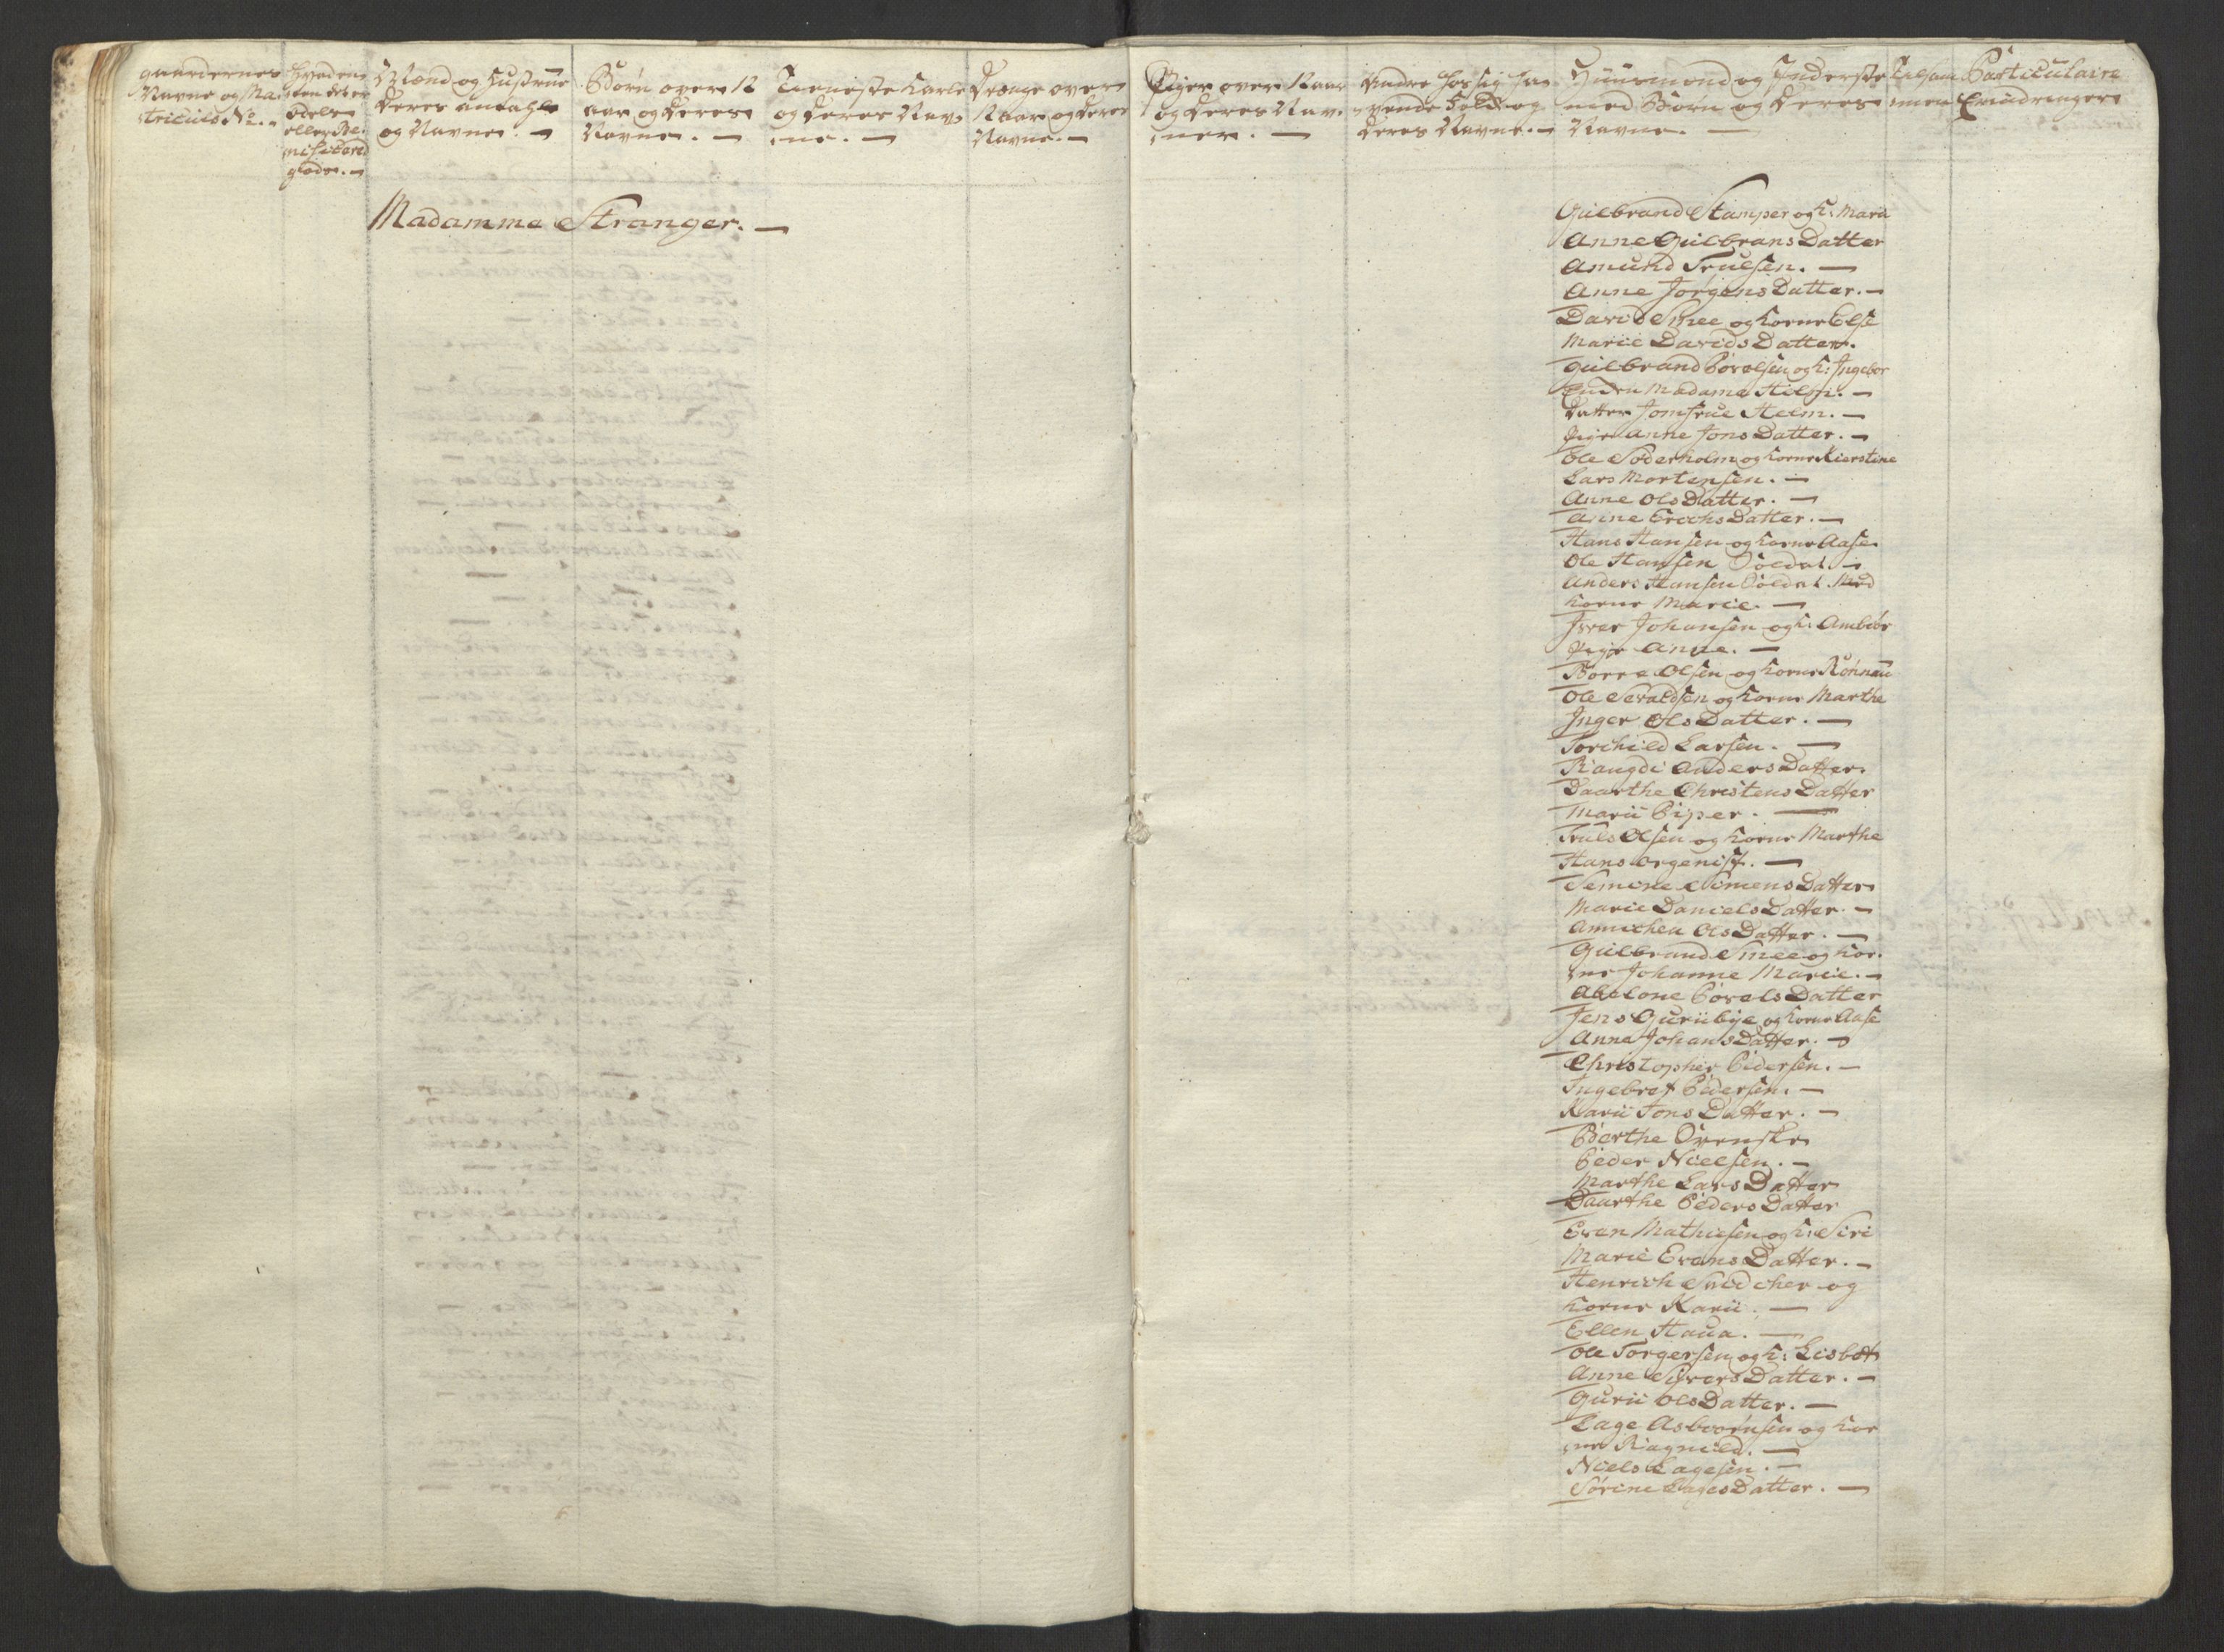 gaardernes
Navne og Ma-
triculs No. -
odels
eller Be-
nificered
gods. -
Mænd og Hustrue
deres antahl
og Navne. -
Børn over 12
aar og deres
Navne. -
Tieniste Karle
og deres Nav-
ne. -
Drenge over
12 Aar og deres
Navne. -
Piger over 12 aar
og deres Nav-
ner. -
Andre hos sig ha-
vende folk og
deres Navne. -
Huusmænd og Inderster
med Børn og deres
Navne. -
Tilsam
men
Particulaire
Erindringer
Madamme Stranger. -
Gulbrand Stamper og K: Marii
Anne Gulbrans Datter
Amund Truelsen. -
Anne Jørgens Datter. -
David Smee og Kone Else
Marie Davids Datter.
Gulbrand Povelsen og K: Ingebor
Enken Madame Helm. -
Datter Jomfrue Helm. -
Pige Anne Jons Datter. -
Ole Søderholm og Kone Kierstine
Lars Mortensen. -
Anne Ols Datter. -
Anne Erichs Datter. -
Hans Hansen og Kone Aase
Ole Hansen Soldat. -
Anders Hansen Soldat Med
Kone Marie. -
Iver Johansen og K: Ambiør
Pige Anne. -
Borre Olsen og Kone Rønnau
Ole Sevaldsen og Kone Marthe
Inger Ols Datter. -
Torchild Larsen. -
Rangdi Anders Datter
Daarthe Christens Datter
Marii Piper. -
Truls Olsen og Kone Marthe
Hans Orgenist. -
Semine Simens Datter
Marie Daniels Datter. -
Annichen Ols Datter. -
Gulbrand Smee og Ko-
ne Johanne Marie. -
Abelone Povels Datter
Jens Guriibye og Kone Aase
Anne Johans Datter. -
Christopher Pedersen. -
Ingebret Pedersen. -
Karii Jons Datter. -
Berthe Svenske
Peder Nielsen. -
Marthe Lars Datter
Daarthe Peders Datter
Even Mathiesen og K: Siri
Marie Evens Datter. -
Henrich Snidcher og
Kone Karii. -
Ellen Haua. -
Ole Torgersen og K: Lisbet
Anne Sivers Datter. -
Gurii Ols Datter. -
Lage Asbiørnsen og Ko
ne Ragnild. -
Niels Lagesen. -
Sørine Lages Datter. -